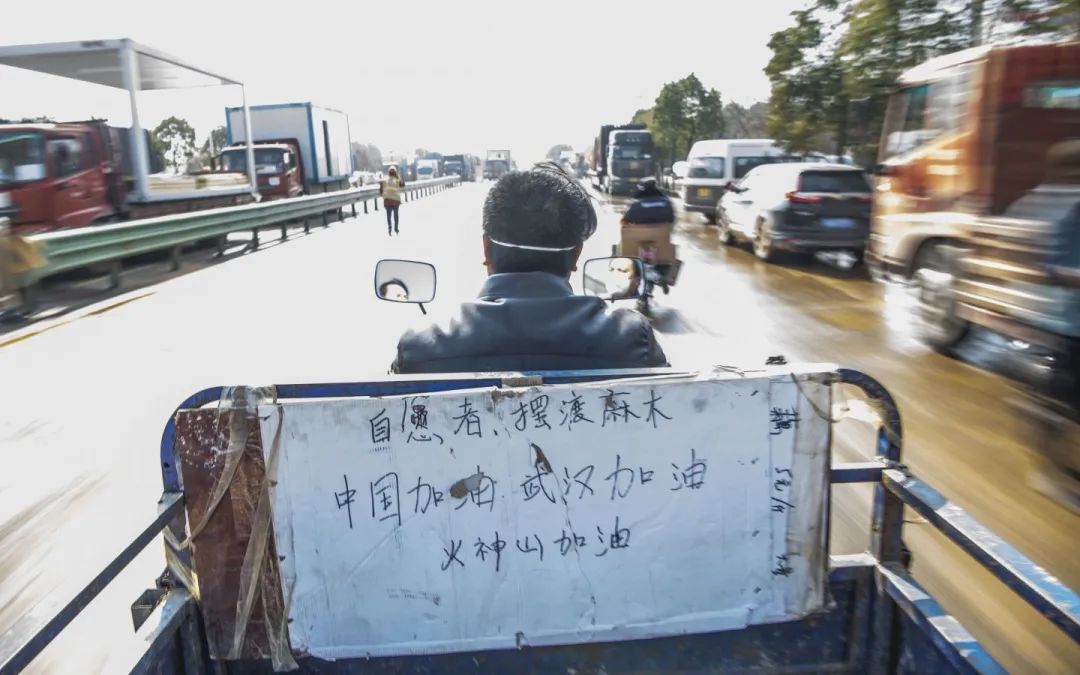 自愿者、摆渡麻木
中国加油 武汉加油
火神山加油